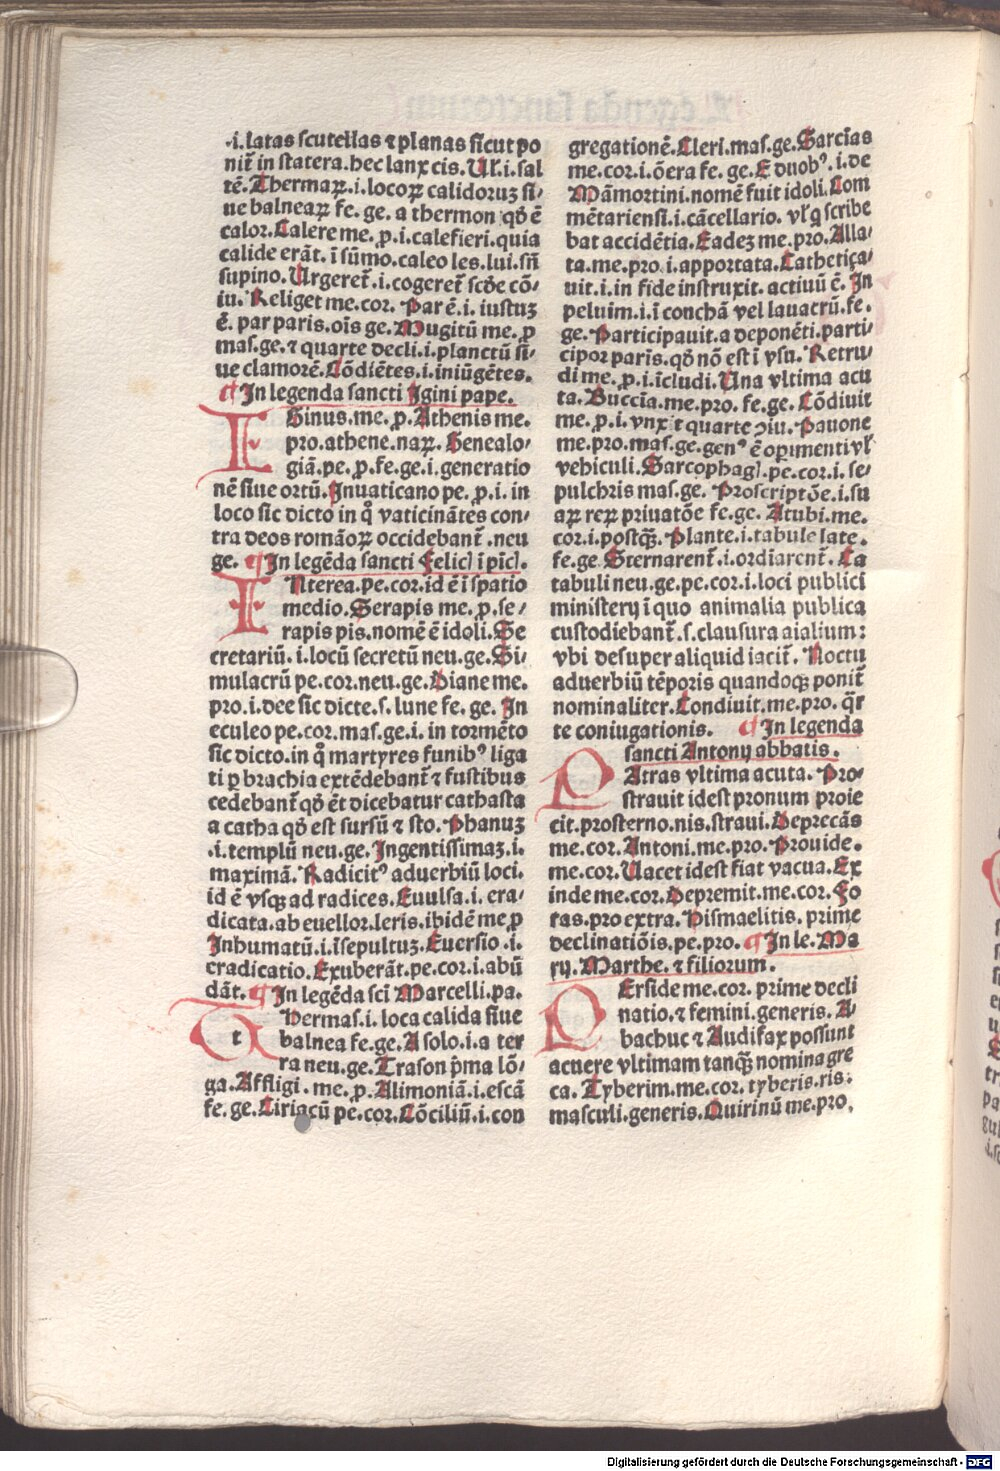 .i. latas scutellas ⁊ planas sicut po
nit̄ in statera. hec lanx cis. Ul̓. i. sal
tē. Thermaꝝ. i. locoꝝ calidoruꝫ si⸗
ue balneaꝝ fe. ge. a thermon qd̓ ē
calor. Calere me. ꝓ. i. calefieri. quia
calide erāt. ī sūmo. caleo les. lui. sn̄
supino. Urgeret̄. i. cogeret̄ scd̓e cō⸗
iu. Religet me. cor. Par ē. i. iustuꝫ
ē. par paris. oīs ge. Mugitū me. ꝓ
mas. ge. ⁊ quarte decli. i. planctū si⸗
ue clamorē. Cōdiētes. i. iniūgētes.
¶ In legenda sancti Igini pape.
IGinus. me. ꝓ. Athenis me.
pro. athene. naꝝ. Genealo⸗
giā. pe. ꝓ. fe. ge. i. generatio
nē siue ortū. Inuaticano pe. ꝓ. i. in
loco sic dicto in q̄ vaticinātes con⸗
tra deos romāoꝝ occidebant̄. neu
ge. ¶ In legēda sancti Felicꝭ ī picꝭ.
INterea. pe. cor. id ē ī spatio
medio. Serapis me. ꝓ. se⸗
rapis pis. nomē ē idoli. Se
cretariū. i. locū secretū neu. ge. Si⸗
mulacrū pe. cor. neu. ge. Diane me.
pro. i. dee sic dicte. s. lune fe. ge. In
eculeo pe. cor. mas. ge. i. in tormēto
sic dicto. in q̄ martyres funibꝰ liga
ti ꝑ brachia extēdebant̄ ⁊ fustibus
cedebant̄ qd̓ ēt dicebatur cathasta
a catha qd̓ est sursū ⁊ sto. Phanuꝫ
.i. templū neu. ge. Ingentissimaꝫ. i.
maximā. Radicitꝰ aduerbiū loci.
id ē vsqꝫ ad radices. Euulsa. i. era⸗
dicata. ab euellor. leris. ibidē me ꝓ
Inhumatū. i. īsepultuꝫ. Euersio. i.
eradicatio. Exuberāt. pe. cor. i. abū
dāt. ¶ In legēda scī Marcelli. pa.
tHermas. i. loca calida siue
balnea fe. ge. A solo. i. a ter
ra neu. ge. Trason p̄ma lō⸗
ga. Affligi. me. ꝓ. Alimoniā. i. escā
fe. ge. Ciriacū pe. cor. Cōciliū. i. con
gregationē. Cleri. mas. ge. Sarcias
me. cor. i. ōera fe. ge. E duobꝰ. i. de
Māmortini. nomē fuit idoli. Com
mētariensi. i. cācellario. vl̓ q̄ scribe
bat accidētia. Eadeꝫ me. pro. Alla⸗
ta. me. pro. i. apportata. Cathetiça⸗
uit. i. in fide instruxit. actiuū ē. In
peluim. i. ī conchā vel lauacrū. fe.
ge. Participauit. a deponēti. parti⸗
cipor paris. qd̓ nō est ī vsu. Retru⸗
di me. ꝓ. i. īcludi. Una vltima acu
ta. Buccia. me. pro. fe. ge. Cōdiuit
me. ꝓ. i. vnxᷓt quarte ↄiu. Pauone
me. pro. mas. ge. genꝰ ē oꝑimenti vl̓
vehiculi. Sarcophagꝭ. pe. cor. i. se⸗
pulchris mas. ge. Proscriptōe. i. su
aꝝ reꝝ priuatōe fe. ge. Atubi. me.
cor. i. postqꝫ̄. Plante. i. tabule late.
fe. ge. Sternarent̄. i. ordiarent̄. Ca
tabuli neu. ge. pe. cor. i. loci publici
ministerij ī quo animalia publica
custodiebant̄. s. clausura aīalium:
vbi desuper aliquid iacit̄. Noctu
aduerbiū tēporis quandoqꝫ ponit̄
nominaliter. Condiuit. me. pro. q̄r
te coniugationis. ¶ In legenda
sancti Antonij abbatis.
PAtras vltima acuta. Pro⸗
strauit idest pronum proie
cit. prosterno. nis. straui. Deprecās
me. cor. Antoni. me. pro. Prouide.
me. cor. Uacet idest fiat vacua. Ex
inde me. cor. Depremit. me. cor. Fo
ras. pro extra. Hismaelitis. prime
declinatiōis. pe. pro. ¶ In le. Ma
rij. Marthe. ⁊ filiorum.
PErside me. cor. prime decli
natio. ⁊ femini. generis. A⸗
bachuc ⁊ Audifax possunt
acuere vltimam tanqꝫ̄ nomina gre
ca. Tyberim. me. cor. tyberis. ris:
masculi. generis. Quirinū me. pro.
Digitalisierung gefördert durch die Deutsche Forschungsgemeinschaft - DFG